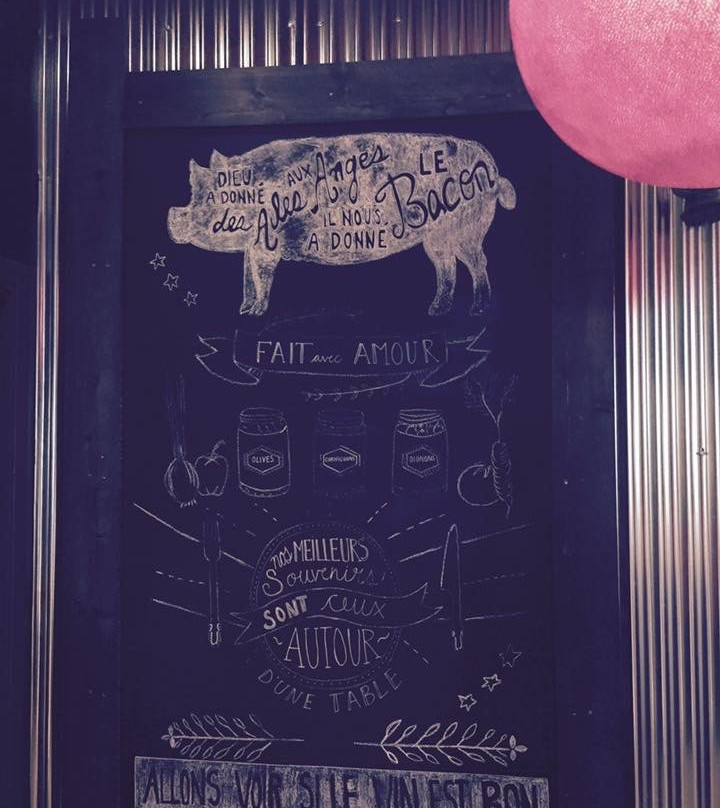 DIEU
A DONNÉ
des Ailes
AUX Anges
IL NOUS
A DONNÉ
LE
Bacon
FAIT avec AMOUR
OLIVES
CORNICHONS
OIGNONS
nos MEILLEURS
Souvenirs
SONT ceux
~AUTOUR~
D'UNE TABLE
ALLONS VOIR SI LE VIN EST BON